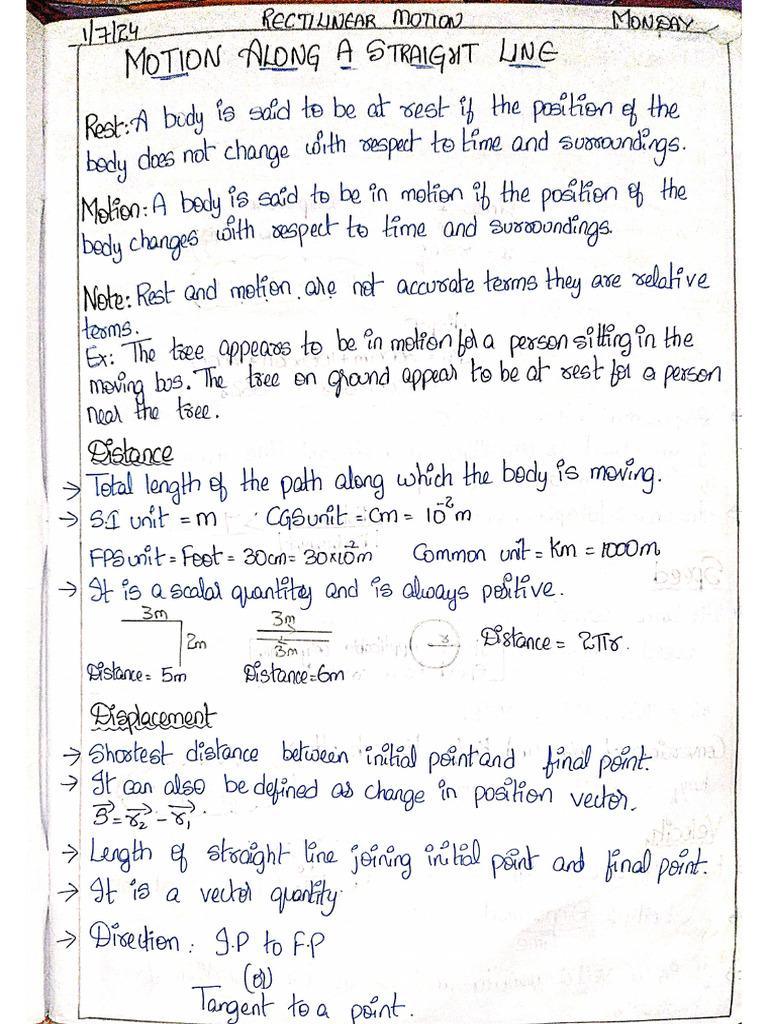 1/7/24 RECTILINEAR MOTION MONDAY
MOTION ALONG A STRAIGHT LINE
Rest: A body is said to be at rest if the position of the
body does not change with respect to time and surroundings.
Motion: A body is said to be in motion if the position of the
body changes with respect to time and surroundings.
Note: Rest and motion are not accurate terms they are relative
terms.
Ex: The tree appears to be in motion for a person sitting in the
moving bus. The tree on ground appear to be at rest for a person
near the tree.
Distance
→ Total length of the path along which the body is moving.
→ S.I unit = m CGS unit = Cm = 10⁻² m
FPS unit = Feet = 30cm = 30×10⁻²m Common unit = Km = 1000m
→ It is a scalar quantity and is always positive.
3m 2m 3m 3m r Distance = 2πr.
Distance = 5m Distance=6m
Displacement
→ Shortest distance between initial point and final point.
→ It can also be defined as change in position vector.
S⃗ = r⃗₂ - r⃗₁.
→ Length of straight line joining initial point and final point.
→ It is a vector quantity.
→ Direction: I.P to F.P
(or)
Tangent to a point.